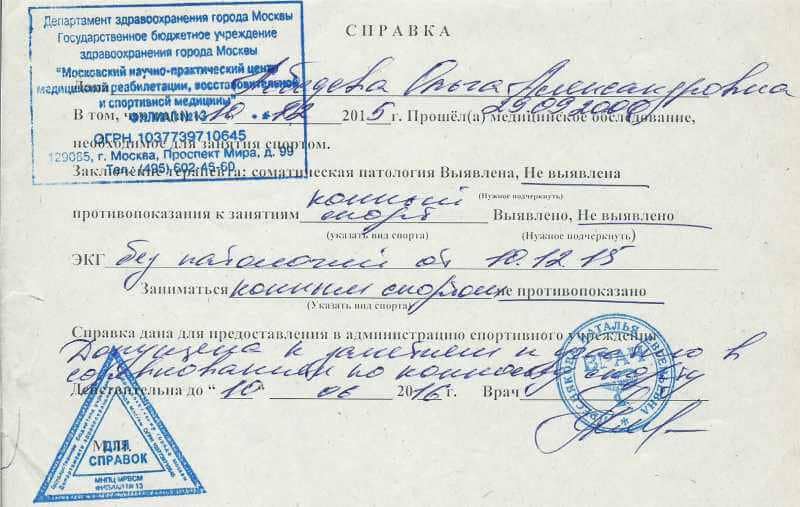 Департамент здравоохранения города Москвы
Государственное бюджетное учреждение
здравоохранения города Москвы
"Московский научно-практический центр
медицинской реабилитации, восстановительной
и спортивной медицины"
ФИЛИАЛ № 13
ОГРН 1037739710645
129085, г. Москва, Проспект Мира, д. 99
Тел. (495) 602-45-50
СПРАВКА
Ольга Александровна
29.09.2000
В том, что 10 12 2015 г. Прошёл(а) медицинское обследование,
необходимое для занятия спортом.
Заключение терапевта: соматическая патология Выявлена, Не выявлена
(Нужное подчеркнуть)
противопоказания к занятиям конный спорт Выявлено, Не выявлено
(указать вид спорта) (Нужное подчеркнуть)
ЭКГ без патологий от 10.12.15
Заниматься конным спортом не противопоказано
(Указать вид спорта)
Справка дана для предоставления в администрацию спортивного учреждения
Допущена к занятиям и участию в
соревнованиях по конному спорту
Действительна до "10" 06 2016 г. Врач
М.П.
ДЛЯ
СПРАВОК
МНПЦ МРВСМ
ФИЛИАЛ № 13
НАТАЛЬЯ
ВРАЧ